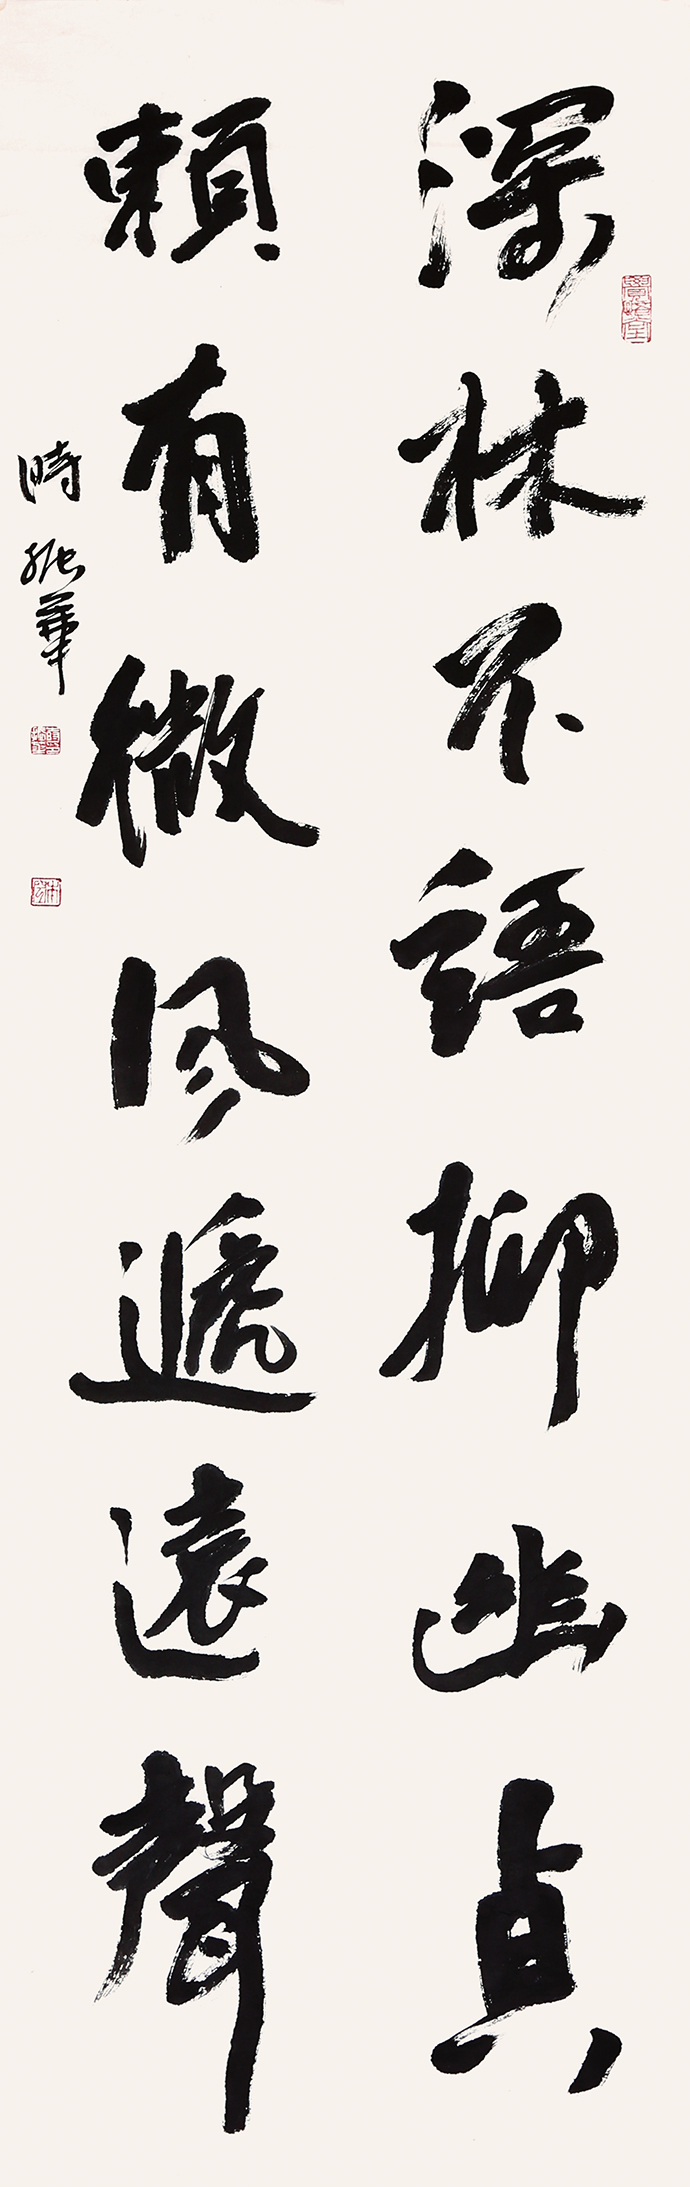 深林不語抑幽貞
賴有微風遞遠聲
時振華